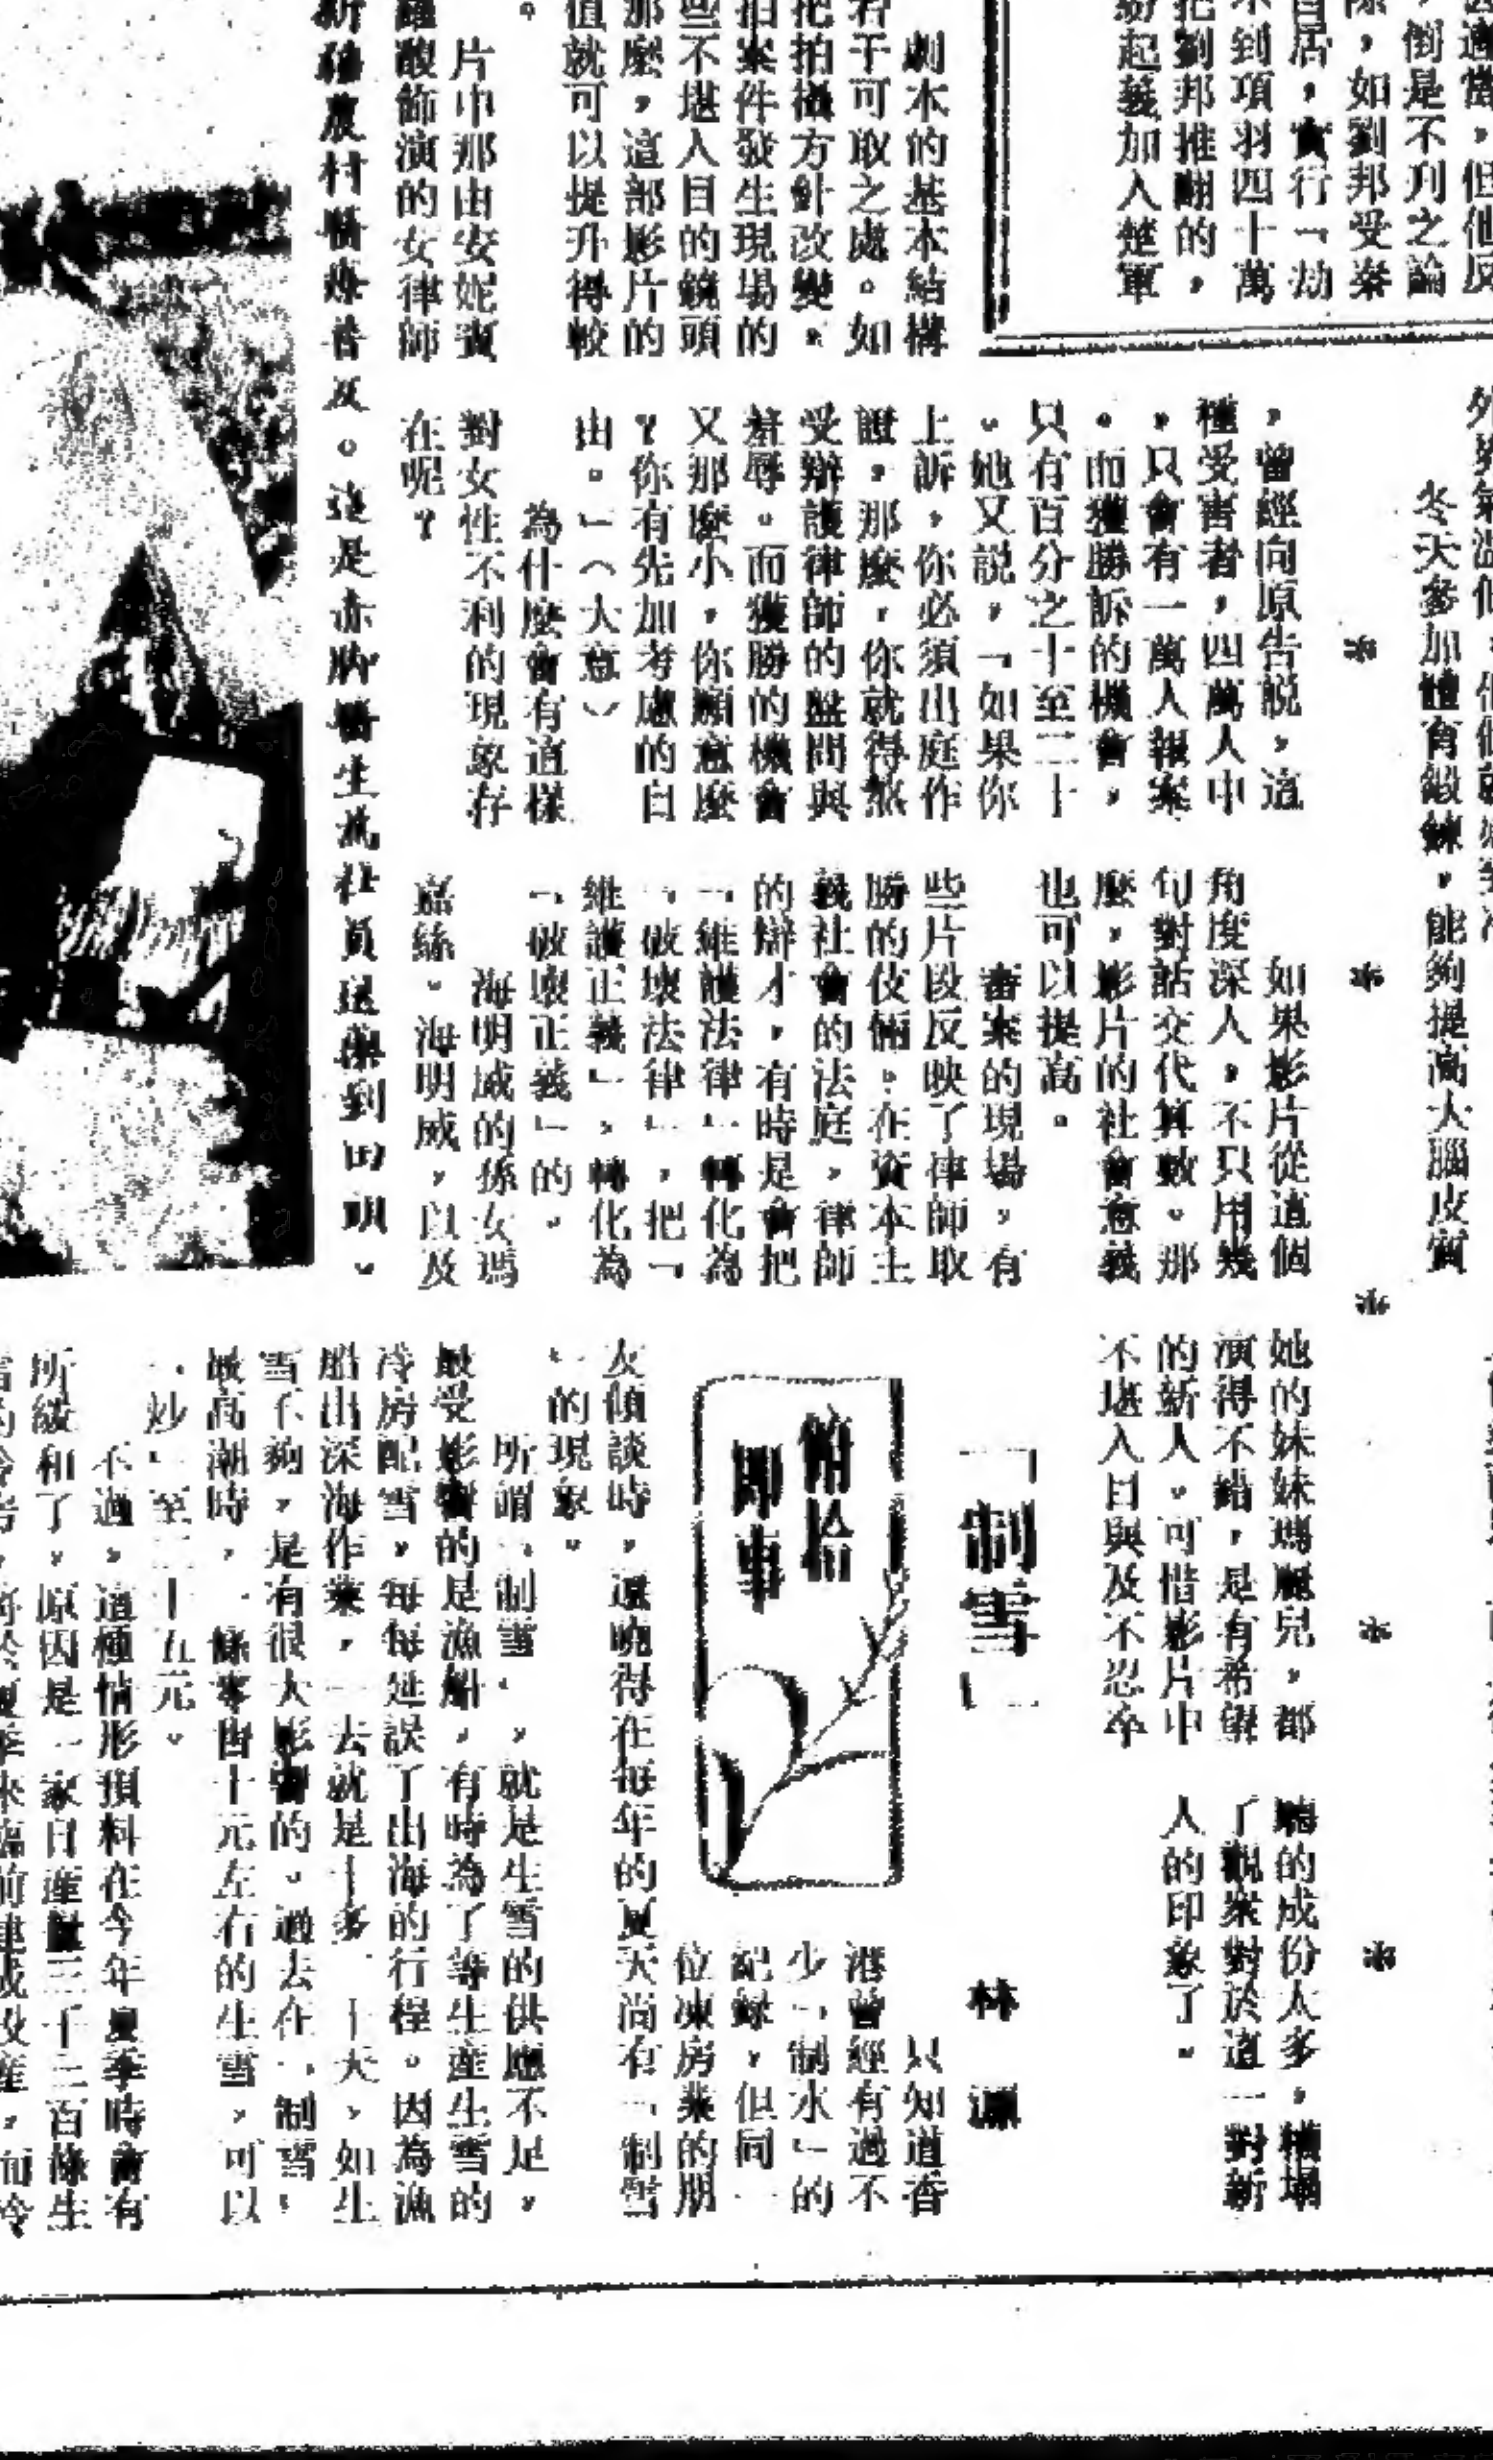 適當，但他反
，倒是不刋之論
，如劉邦受秦
自居，實行「劫
不到項羽四十萬
把劉邦推翻的，
紛起義加入楚軍
冬天參加體育鍛鍊，能夠提高大腦皮質
＊＊＊＊＊
劇本的基本結構
若干可取之處。如
把拍攝方針改變，
拍案件發生現場的
些不堪入目的鏡頭
那麼，這部影片的
值就可以提升得較
。
片中那由安妮賓
羅酸飾演的女律師
，曾經向原告説，這
種受害者，四萬人中
，只會有一萬人報案
。而獲勝訴的機會，
只有百分之十至二十
。她又説，「如果你
上訴，你必須出庭作
證，那麼，你就得熬
受辯護律師的盤問與
羞辱。而獲勝的機會
又那麼小，你願意麼
？你有先加考慮的自
由。」（大意）
為什麼會有這樣
對女性不利的現象存
在呢？
如果影片從這個
角度深入，不只用幾
句對話交代算數。那
麼，影片的社會意義
也可以提高。
審案的現場，有
些片段反映了律師取
勝的伎倆。在資本主
義社會的法庭，律師
的辯才，有時是會把
「維護法律」轉化為
「破壞法律」，把「
維護正義」，轉化為
「破壞正義」的。
海明威的孫女瑪
嘉絲。海明威，以及
她的妹妹瑪麗兒，都
演得不錯，是有希望
的新人。可惜影片中
不堪入目與及不忍卒
聽的成份太多，糟塌
了觀衆對於這一對新
人的印象了。
新疆農村醫療普及。這是赤脚醫生為社員送藥到田頭。
「制雪」
林源
俯拾
即事
只知道香
港曾經有過不
少「制水」的
紀錄，但同一
位凍房業的朋
友傾談時，還曉得在每年的夏天尚有「制雪
」的現象。
所謂「制雪」，就是生雪的供應不足，
最受影響的是漁船，有時為了等生產生雪的
冷房配雪，每每延誤了出海的行程。因為漁
船出深海作業，一去就是十多二十天，如生
雪不夠，是有很大影響的。過去在「制雪」
最高潮時，一條零售十元左右的生雪，可以
「炒」至二十五元。
不過，這種情形預料在今年夏季時會有
所緩和了，原因是一家日產量三千二百條生